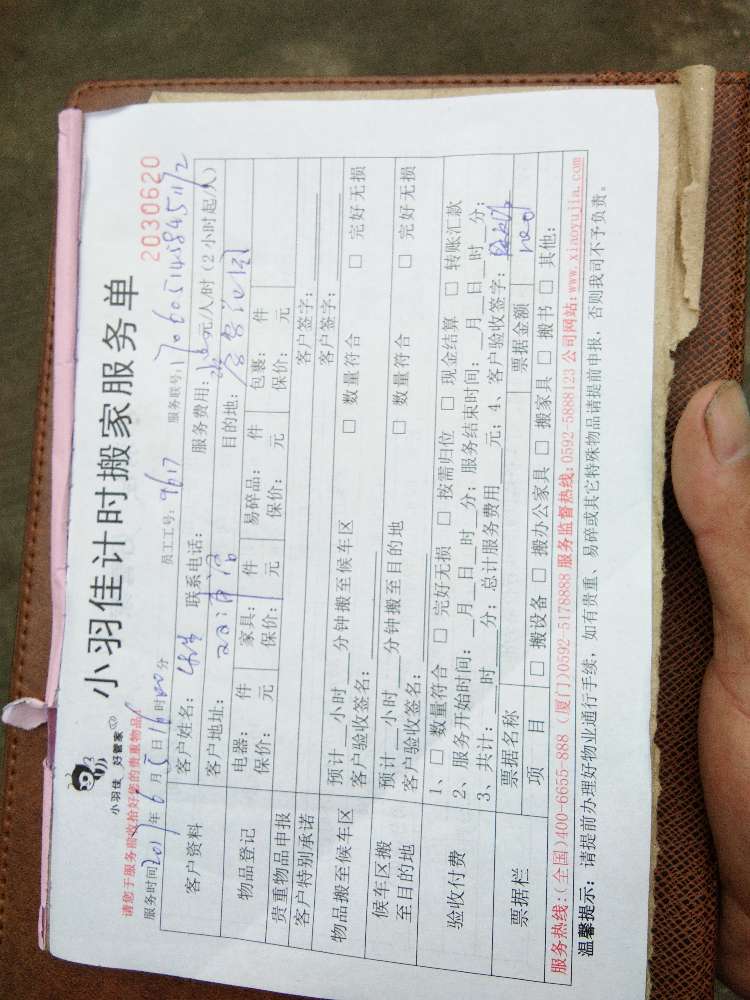 小羽佳 好管家
小羽佳计时搬家服务单
2030620
请您于服务前收拾好您的贵重物品。
服务时间2017年6月5日16时00分 员工工号: 9617 服务联号: 170605145845112
客户资料
客户姓名: 联系电话: 服务费用: 元/人/时(2小时起/人)
客户地址: 目的地:
物品登记
电器: 件 家具: 件 易碎品: 件 包裹: 件
保价: 元 保价: 元 保价: 元 保价: 元
贵重物品申报 客户签字:
客户特别承诺 客户签字:
物品搬至候车区
预计__小时__分钟搬至候车区
客户验收签名: □ 数量符合 □ 完好无损
候车区搬至目的地
预计__小时__分钟搬至目的地
客户验收签名: □ 数量符合 □ 完好无损
验收付费
1、□ 数量符合 □ 完好无损 □ 按需归位 □ 现金结算 □ 转账汇款
2、服务开始时间:__月__日__时__分; 服务结束时间:__月__日__时__分;
3、共计:__时__分; 总计服务费用__元; 4、客户验收签字:
票据栏
票据名称 票据金额
项 目 □ 搬设备 □ 搬办公家具 □ 搬家具 □ 搬书 □ 其他:
服务热线:(全国)400-6655-888 (厦门)0592-5178888 服务监督热线:0592-5888123 公司网站:www.xiaoyujia.com
温馨提示: 请提前办理好物业通行手续, 如有贵重、易碎或其它特殊物品请提前申报, 否则我司不予负责。